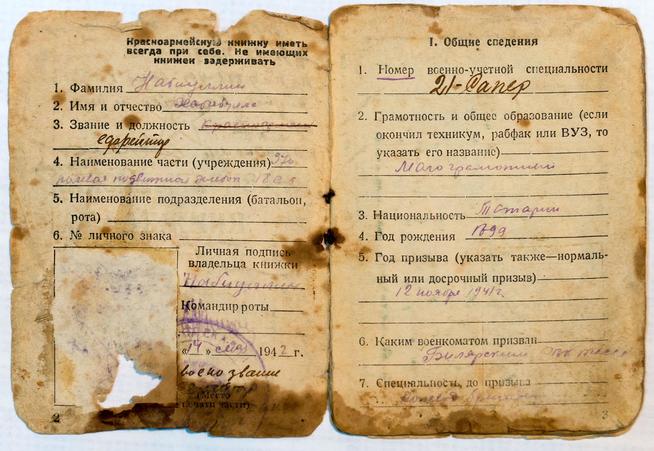 Красноармейскую книжку иметь
всегда при себе. Не имеющих
книжек задерживать
1. Фамилия Набиуллин
2. Имя и отчество
3. Звание и должность
ефрейтор
4. Наименование части (учреждения)
полевая подвижная
5. Наименование подразделения (батальон,
рота)
6. № личного знака
Личная подпись
владельца книжки
Набиуллин
Командир роты
„14“ 1942 г.
звание
(Место
печати части)
2
I. Общие сведения
1. Номер военно-учетной специальности
21-Сапер
2. Грамотность и общее образование (если
окончил техникум, рабфак или ВУЗ, то
указать его название)
Малограмотный
3. Национальность Татарин
4. Год рождения 1899
5. Год призыва (указать также—нормаль-
ный или досрочный призыв)
12 ноября 1941г.
6. Каким военкоматом призван
Билярским
7. Специальность до призыва
3